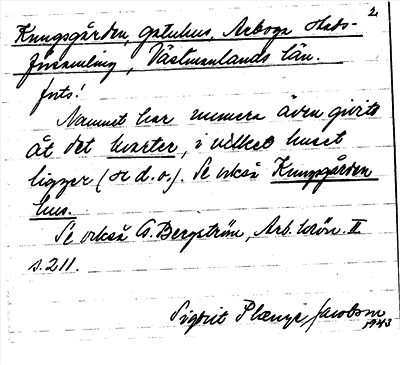 2
Kungsgården, gatuhus, Arboga stads-
församling, Västmanlands län.
forts!
Namnet har numera även givits
åt det kvarter, i vilket huset
ligger (N d.o.). Se också Kungsgården
hus.
Se också G. Bergström, Arb. krön. II
s. 211.
Sigbrit Plænge Jacobson
1943